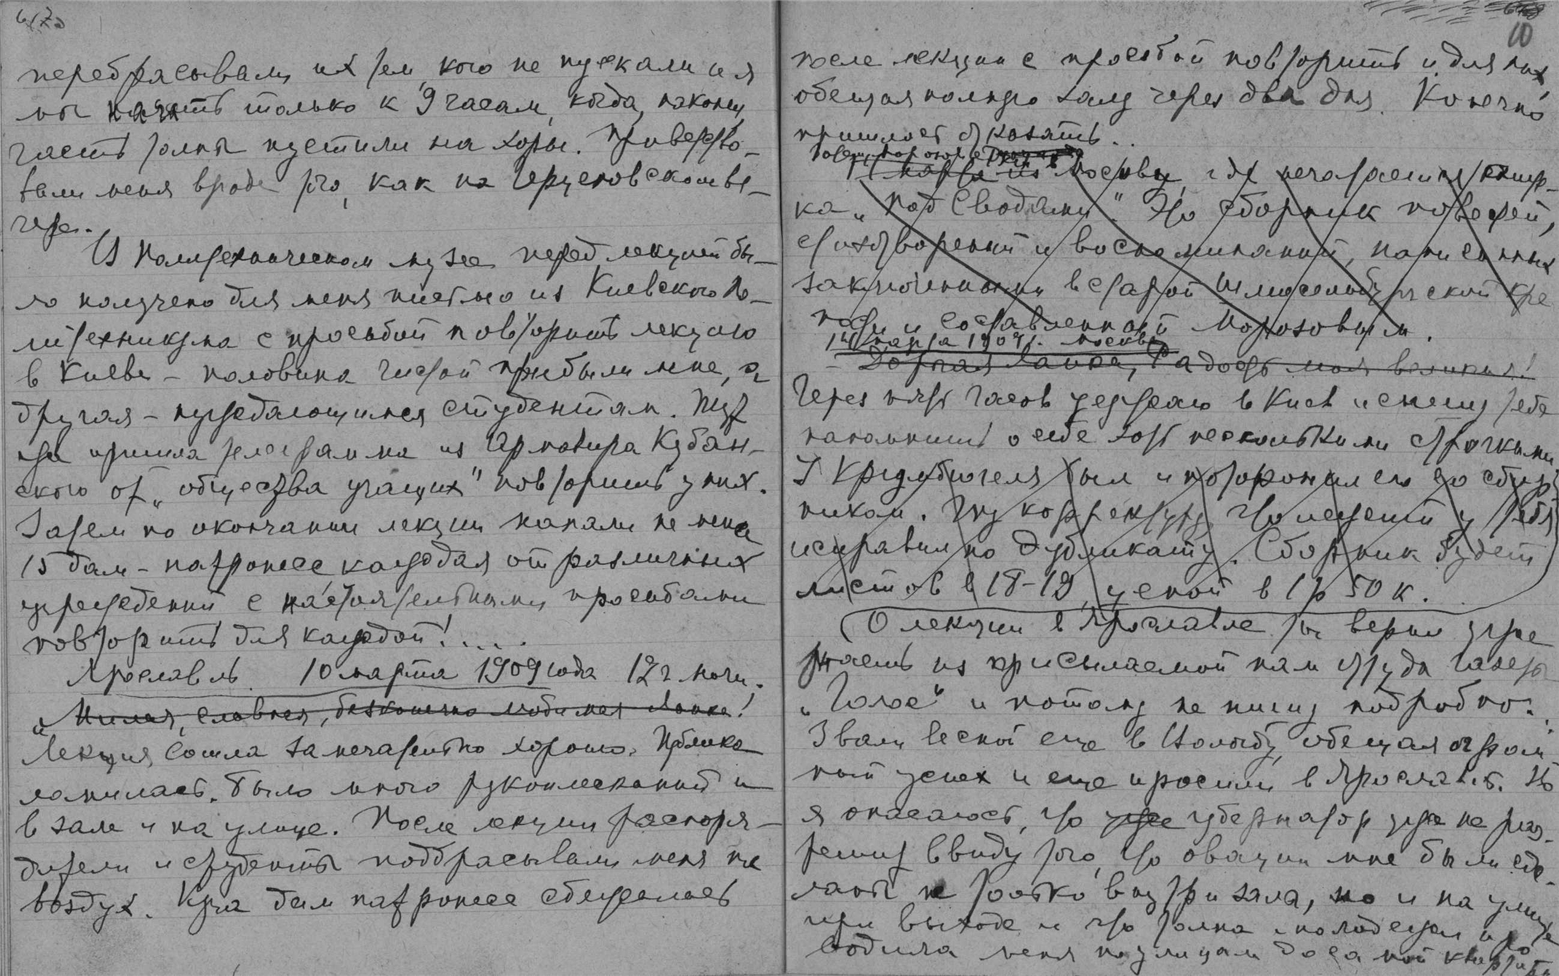 перебрасывали их тем, кого не пускали и я
мог начать только к 9 часам, когда, наконец,
часть толпы пустили на хоры. Приветство-
вали меня вроде того, как на Герценовском ве-
чере.
В Политехническом музее перед лекцией бы-
ло получено для меня письмо из Киевского По-
литехникума с просьбой повторить лекцию
в Киеве – половина чистой прибыли мне, а
другая – нуждающимся студентам. Тут
же пришла телеграмма из Армавира Кубан-
ского от „общества учащих" повторить у них.
Затем по окончании лекции напали на меня
15 дам – патронесс каждая от различных
учреждений с настоятельными просьбами
повторить для каждой!....
Ярославль 10 марта 1909 года 12 ч. ночи.
„Милая, славная, бесконечно любимая Ксана!
Лекция сошла замечательно хорошо. Публика
ломилась. Было много рукоплесканий и
в зале и на улице. После лекции распоря-
дители и студенты подбрасывали меня на
воздух. Куча дам патронесс сбежалась
10
после лекции с просьбой повторить и для них,
обещая полную залу через два дня. Конечно
пришлось отказать...
Москву, где печатается книж-
ка „Под Сводами". Это сборник повестей,
стихотворений и воспоминаний, написанных
заключенными в старой Шлиссельбургской кре-
пости и составленной Морозовым.
14 марта 1909 г. Москва
Дорогая Ксана, радость моя великая!
Через пять часов уезжаю в Киев и спешу тебе
напомнить о себе хоть несколькими строчками
У был и поторопил его со сбор-
ником. Ту корректуру, что лежит у тебя
исправил по дубликату. Сборник будет
листов в 18-19, ценой в 1 р 50 к.
О лекции в Ярославле ты верно уже
знаешь из присылаемой нам оттуда газеты
„Голос" и потому не пишу подробно.
Звали весной еще в Вологду, обещая огром-
ный успех и еще просили в Ярославль. Но
я опасаюсь, что губернатор уже не раз-
решит ввиду того, что овации мне были сде-
ланы не только внутри зала, но и на улице
при выходе и что толпа молодежи про-
водила меня по улицам до самой квартиры